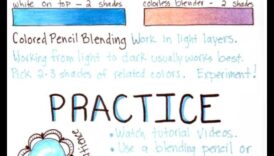 white on top - 2 shades
colorless blender - 2 shades
Colored Pencil Blending Work in light layers.
Working from light to dark usually works best.
Pick 2-3 shades of related colors. Experiment!
PRACTICE
• Watch tutorial videos.
• Use a blending pencil or